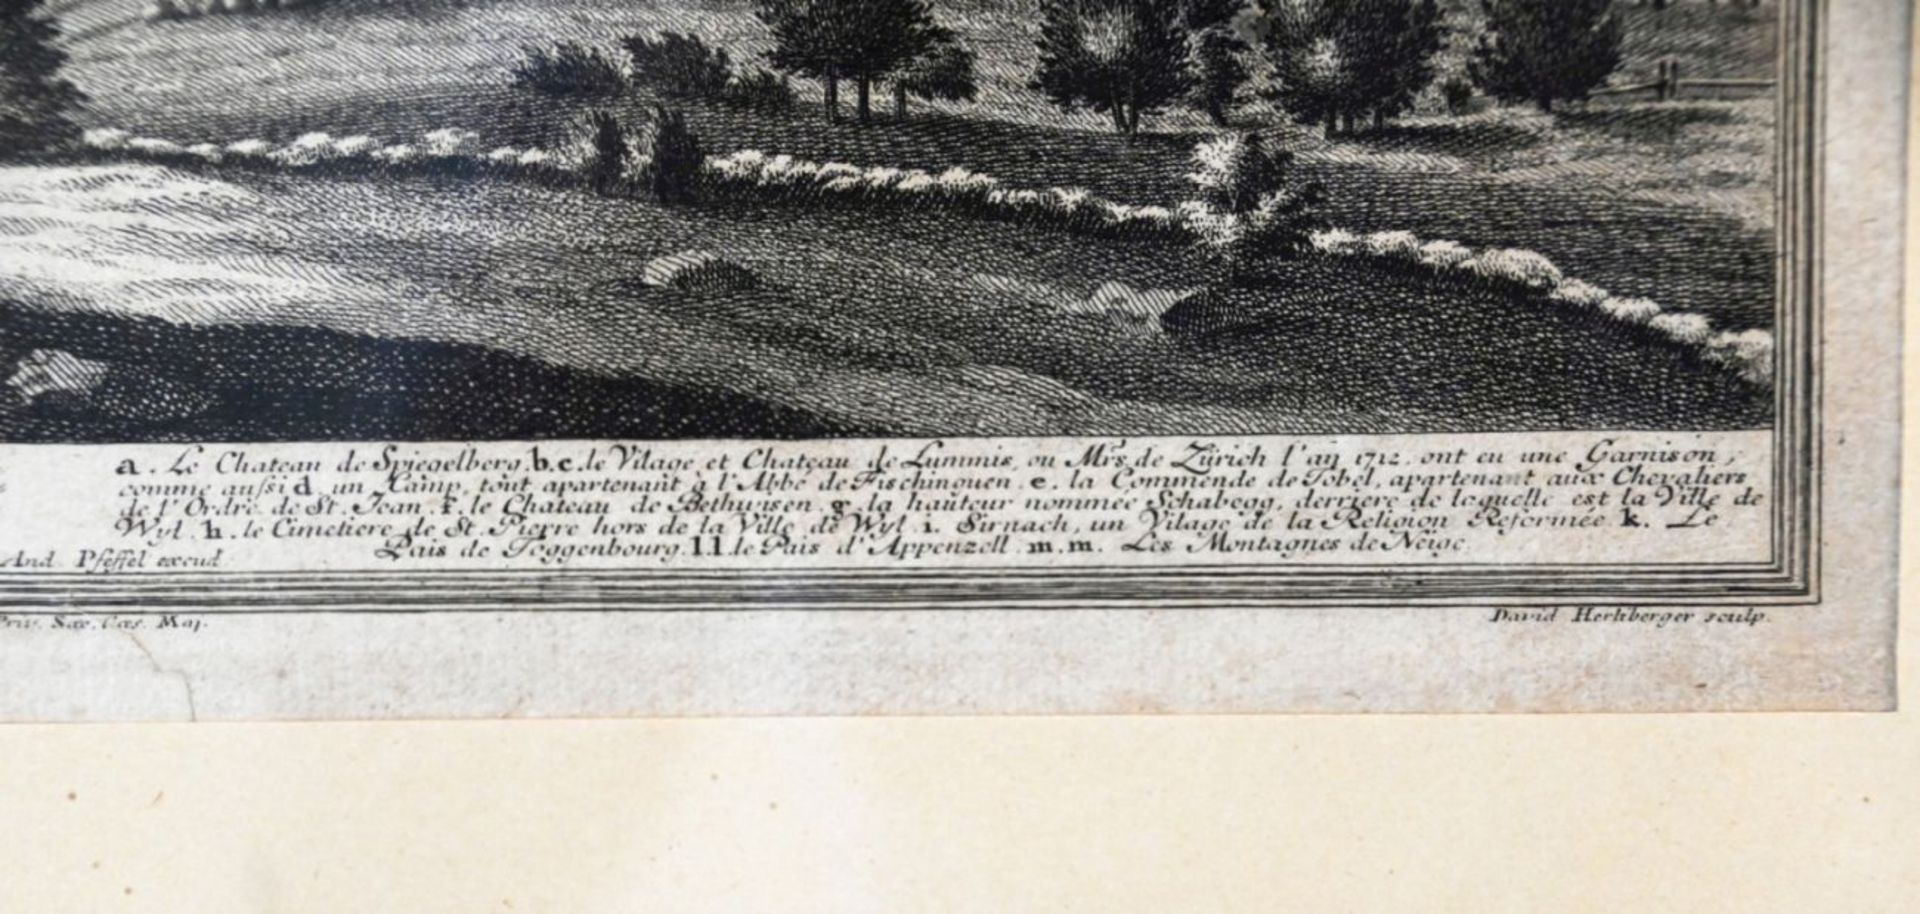 a. Le Chateau de Spiegelberg. b.c. le Vilage et Chateau de Lummis, ou Mrs. de Zürich l'an 1712. ont eu une Garnison,
comme aussi d. un Camp, tout apartenant à l'Abbé de Fischinguen. e. la Commende de Tobel, apartenant aux Chevaliers
de l'Ordre de St. Jean. f. le Chateau de Bethwisen. g. la hauteur nommée Schabegg, derriere de loquelle est la Ville de
Wyl. h. le Cimetiere de St. Pierre hors de la Ville de Wyl. i. Sirnach, un Vilage de la Religion Reformée. k. Le
Pais de Toggenbourg. l.l. le Pais d'Appenzell. m.m. Les Montagnes de Neige.
And Pfeffel excud.
Priv. Sac. Cæs. Maj.
David Herliberger sculp.